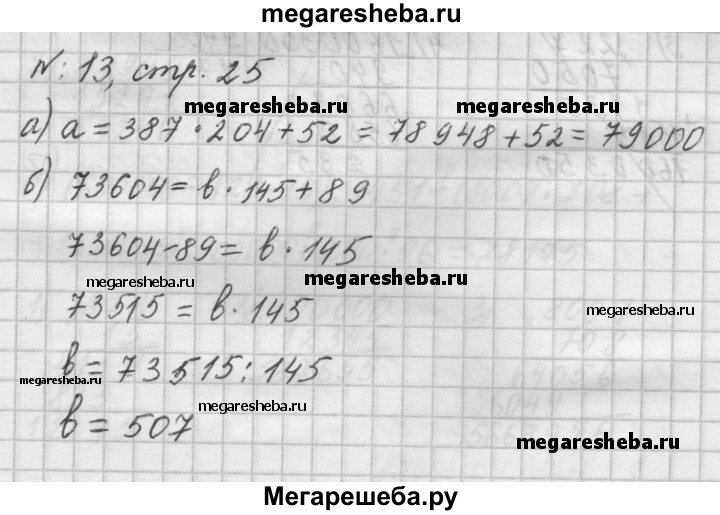 megaresheba.ru
№: 13, стр. 25
megaresheba.ru megaresheba.ru
а) a = 387 · 204 + 52 = 78 948 + 52 = 79000
б) 73604 = b · 145 + 89
73604 - 89 = b · 145
megaresheba.ru megaresheba.ru
73515 = b · 145 megaresheba.ru
b = 73515 : 145
megaresheba.ru
b = 507 megaresheba.ru
megaresheba.ru
Мегарешеба.ру